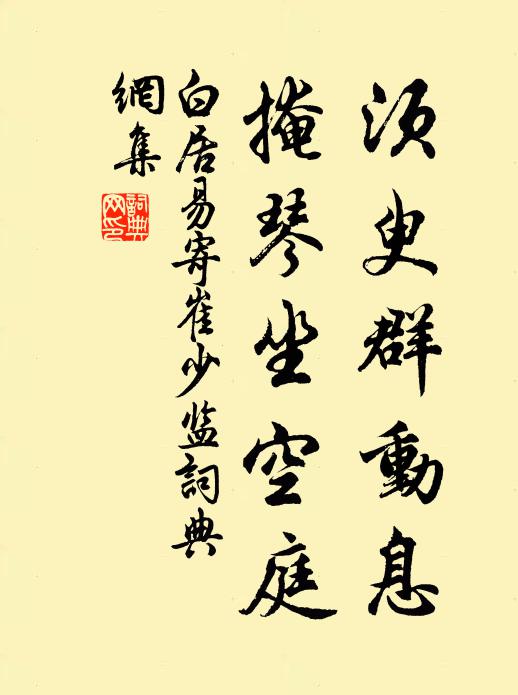 須臾群動息
掩琴坐空庭
白居易寄崔少监詞典
網集
詞典
网印